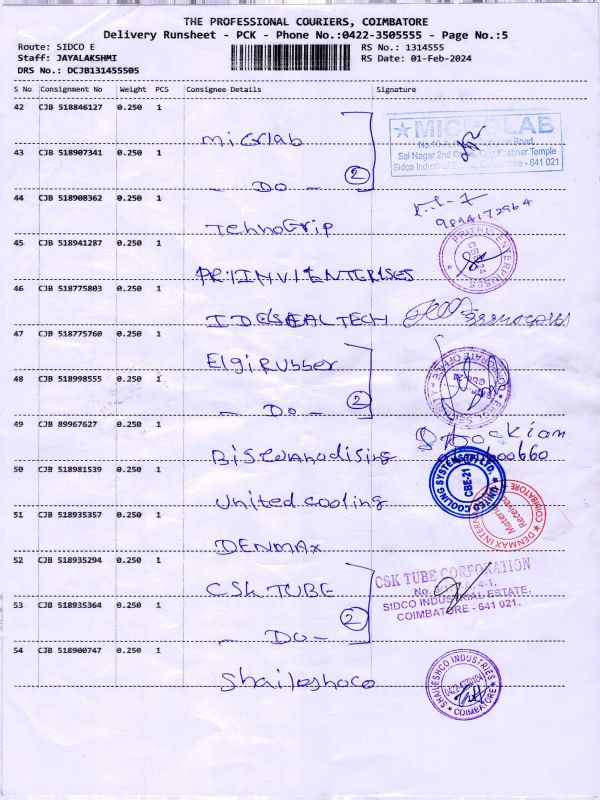 THE PROFESSIONAL COURIERS, COIMBATORE
Delivery Runsheet - PCK - Phone No.:0422-3505555 - Page No.:5
Route: SIDCO E
RS No.: 1314555
Staff: JAYALAKSHMI
RS Date: 01-Feb-2024
DRS No.: DCJB131455505
S No Consignment No Weight PCS Consignee Details Signature
42 CJB 518846127 0.250 1
Microlab
MICROLAB
43 CJB 518907341 0.250 1
Sai Nagar 2nd Temple
Sidco Industrial Coimbatore - 641 021
- DO - 2
44 CJB 518908362 0.250 1
TehnoGrip
9844172964
45 CJB 518941287 0.250 1
PRITHVI ENTERPRISES
PRIINVI ENTERISES
46 CJB 518775803 0.250 1
IDESEAL TECH
47 CJB 518775760 0.250 1
Elgi Rubber
48 CJB 518998555 0.250 1
- DO - 2
49 CJB 89967627 0.250 1
50 CJB 518981539 0.250 1
UNITED COOLING SYSTEMS (P) LTD.
CBE-21
United cooling
51 CJB 518935357 0.250 1
DENMAX INTERN
COIMBATORE
Material
Received
DENMAX
52 CJB 518935294 0.250 1
CSK TUBE
CSK TUBE CORPORATION
SIDCO INDUSTRIAL ESTATE,
COIMBATORE - 641 021.
53 CJB 518935364 0.250 1
- DO - 2
54 CJB 518900747 0.250 1
Shaileshoco
SHAILESHCO INDUSTRIES
COIMBATORE